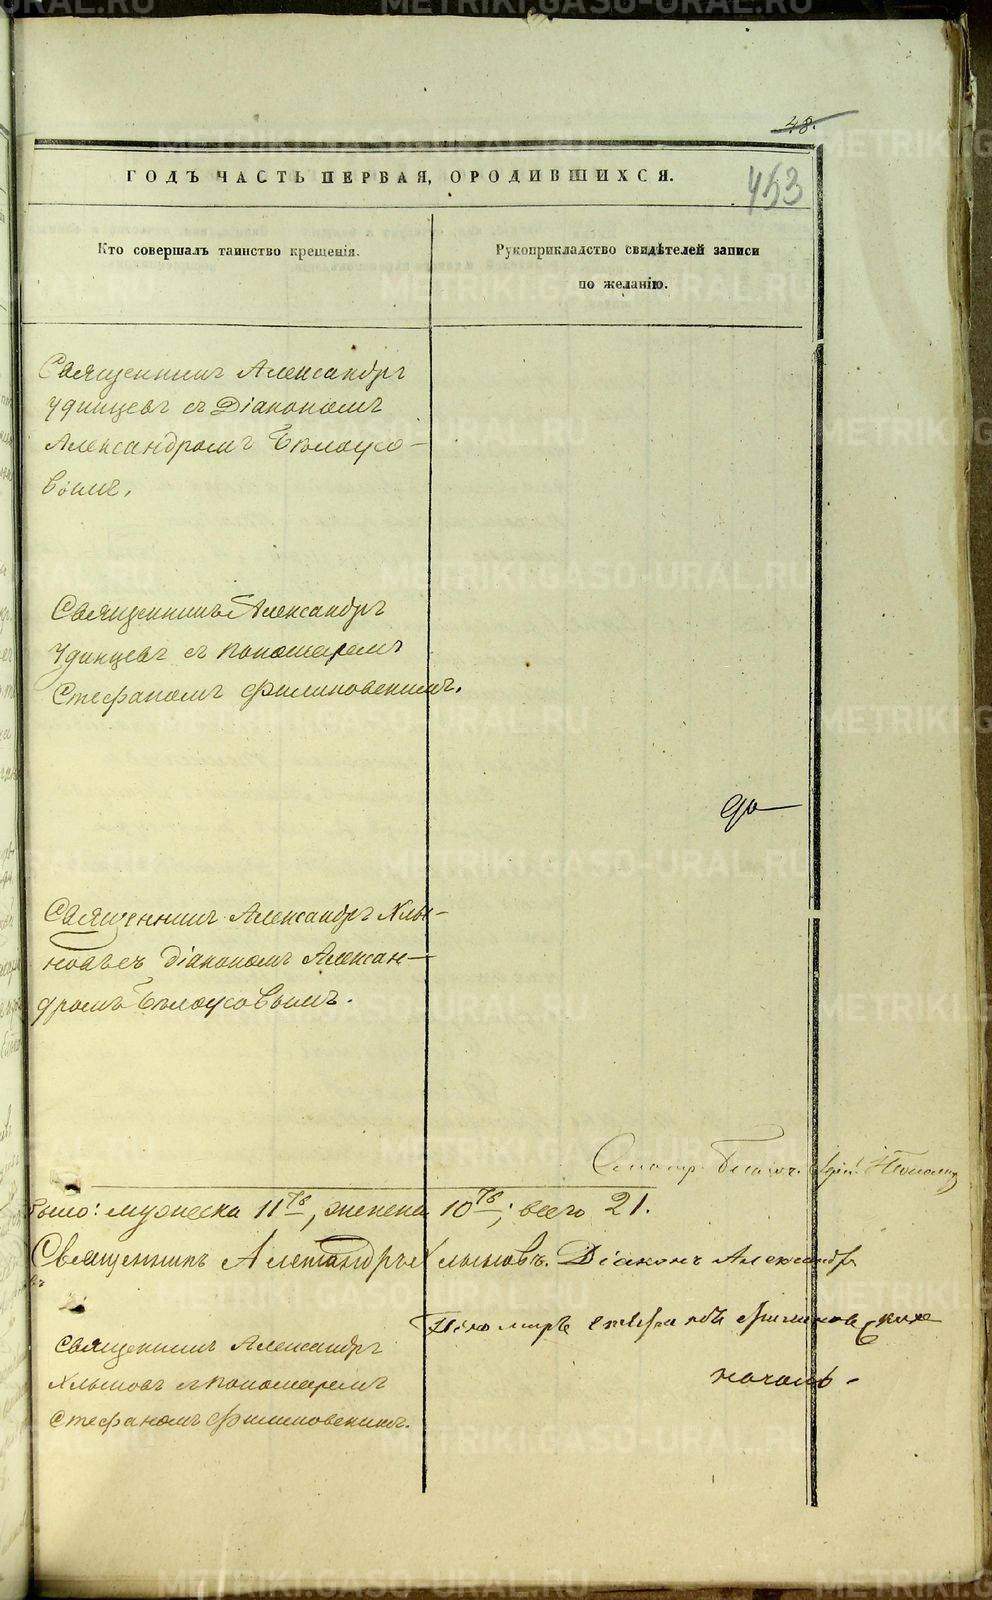 48.
ГОДЪ ЧАСТЬ ПЕРВАЯ, О РОДИВШИХСЯ.
453
Кто совершалъ таинство крещенія.
Рукоприкладство свидѣтелей записи
по желанію.
Священникъ Александръ
Удинцевъ съ Діакономъ
Александромъ Бѣлоусо-
вымъ.
Священникъ Александръ
Удинцевъ съ пономаремъ
Стефаномъ Филиповскимъ.
Священникъ Александръ Хлы-
новъ съ Діакономъ Алексан-
дромъ Бѣлоусовымъ.
было: мужеска 11ть, женска 10ть; всего 21.
Священникъ Александръ Хлыновъ. Діаконъ Александръ
Пономарь Стефанъ
Священникъ Александръ
Хлыновъ съ пономаремъ
Стефаномъ Филиповскимъ.
METRIKI.GASO-URAL.RU